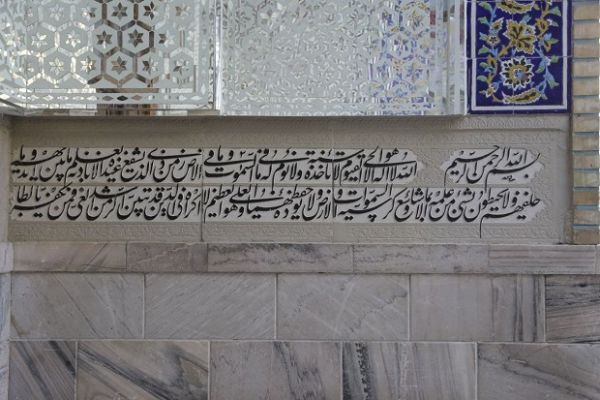 بسم الله الرحمن الرحیم الله لا اله الا هو الحی القیوم لا تاخذه سنة ولا نوم له ما فی السموات و ما فی الارض من ذی الذی یشفع عنده الا باذنه یعلم ما بین ایدیهم و ما
خلفهم ولا یحیطون بشئ من علمه الا بما شاء وسع کرسیه السموات و الارض ولا یؤده حفظهما و هو العلی العظیم لا اکراه فی الدین قد تبین الرشد من الغی فمن یکفر بالطا